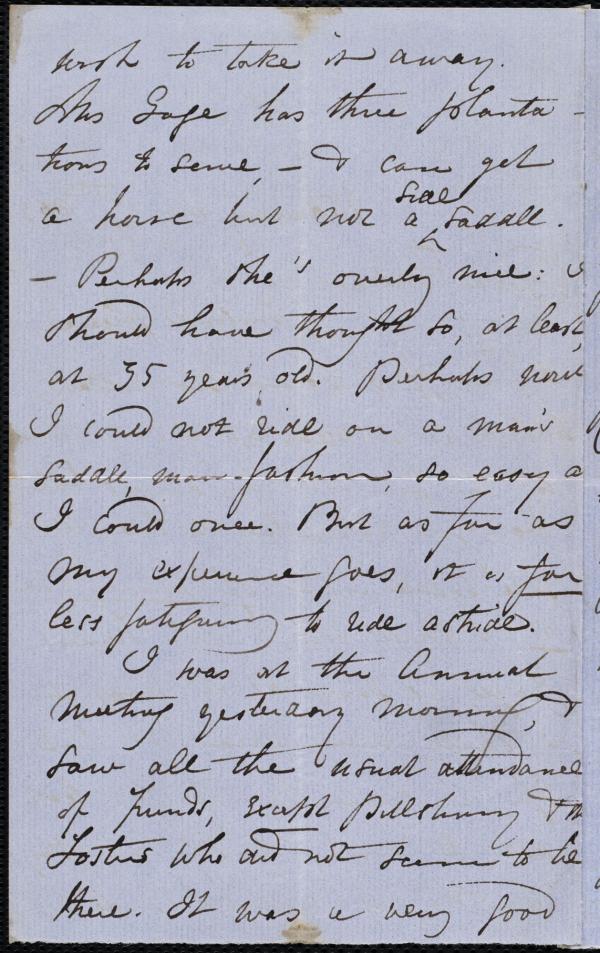 wish to take it away.
Mrs Gage has three planta-
tions to serve, - & can get
a horse but not a side saddle.
- Perhaps she's overly nice: I
should have thought so, at least,
at 35 years old. Perhaps now
I could not ride on a man's
saddle, man-fashion, so easy a
I could once. But as far as
my experience goes, it is far
less fatiguing to ride astride.
I was at the Annual
Meeting yesterday morning, &
saw all the usual attendance
of friends, except Pillsbury &
Fosters who did not seem to be
there. It was a very good